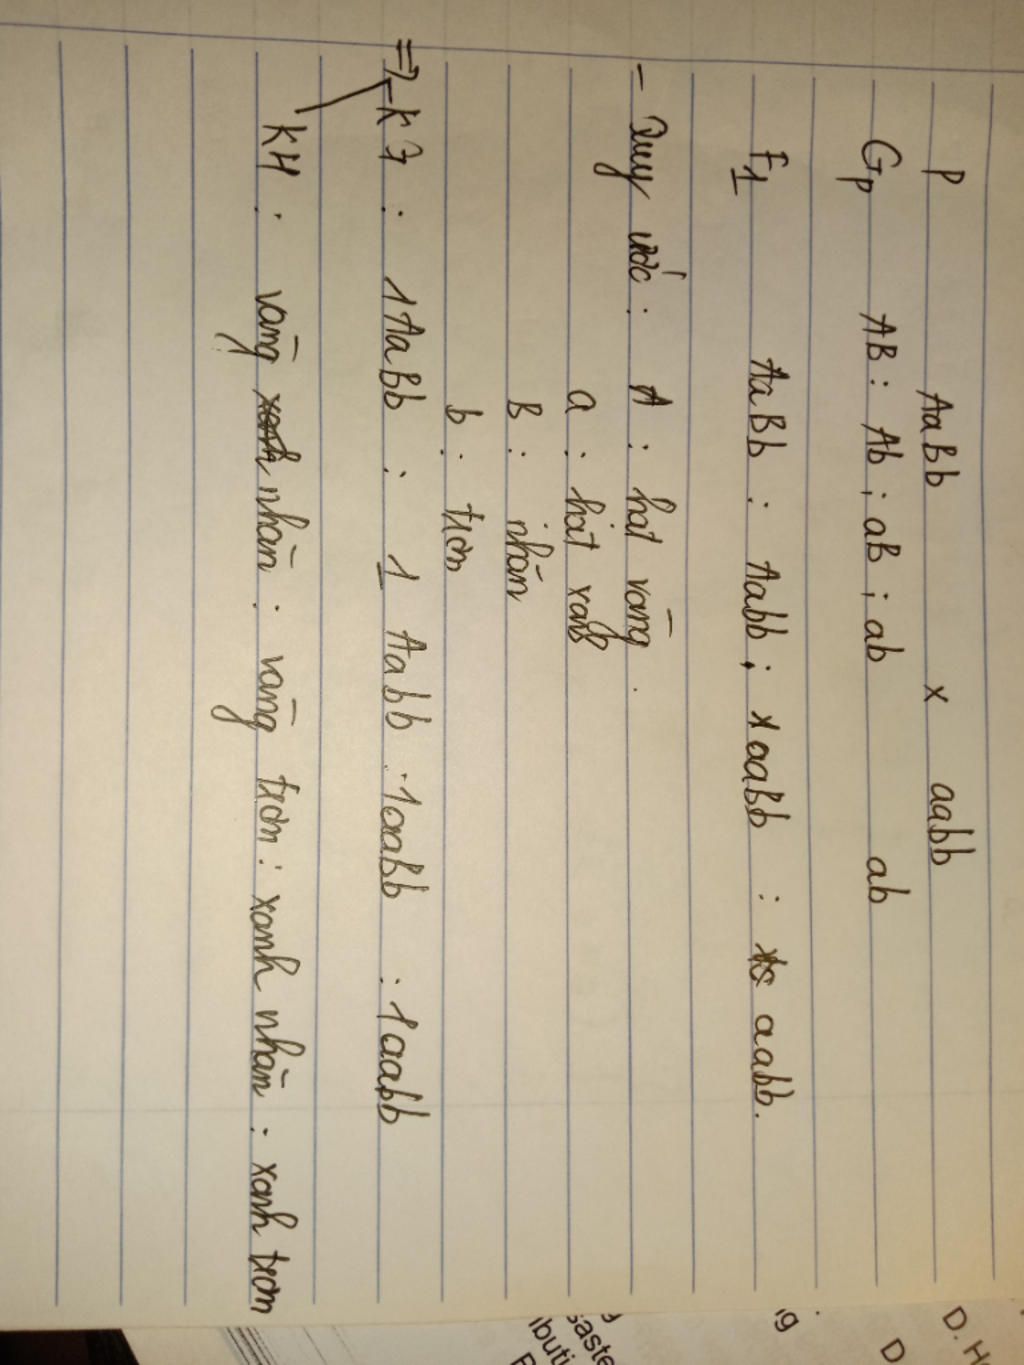 P AaBb x aabb
Gp AB : Ab ; aB ; ab ab
F1 AaBb : Aabb ; aaBb : aabb.
- Quy ước : A : hạt vàng .
a : hạt xanh
B : nhăn
b : trơn
=> KG : 1AaBb : 1 Aabb : 1aaBb : 1aabb
KH : vàng nhăn : vàng trơn : xanh nhăn : xanh trơn
D. H
D
ng
saste
ibuti